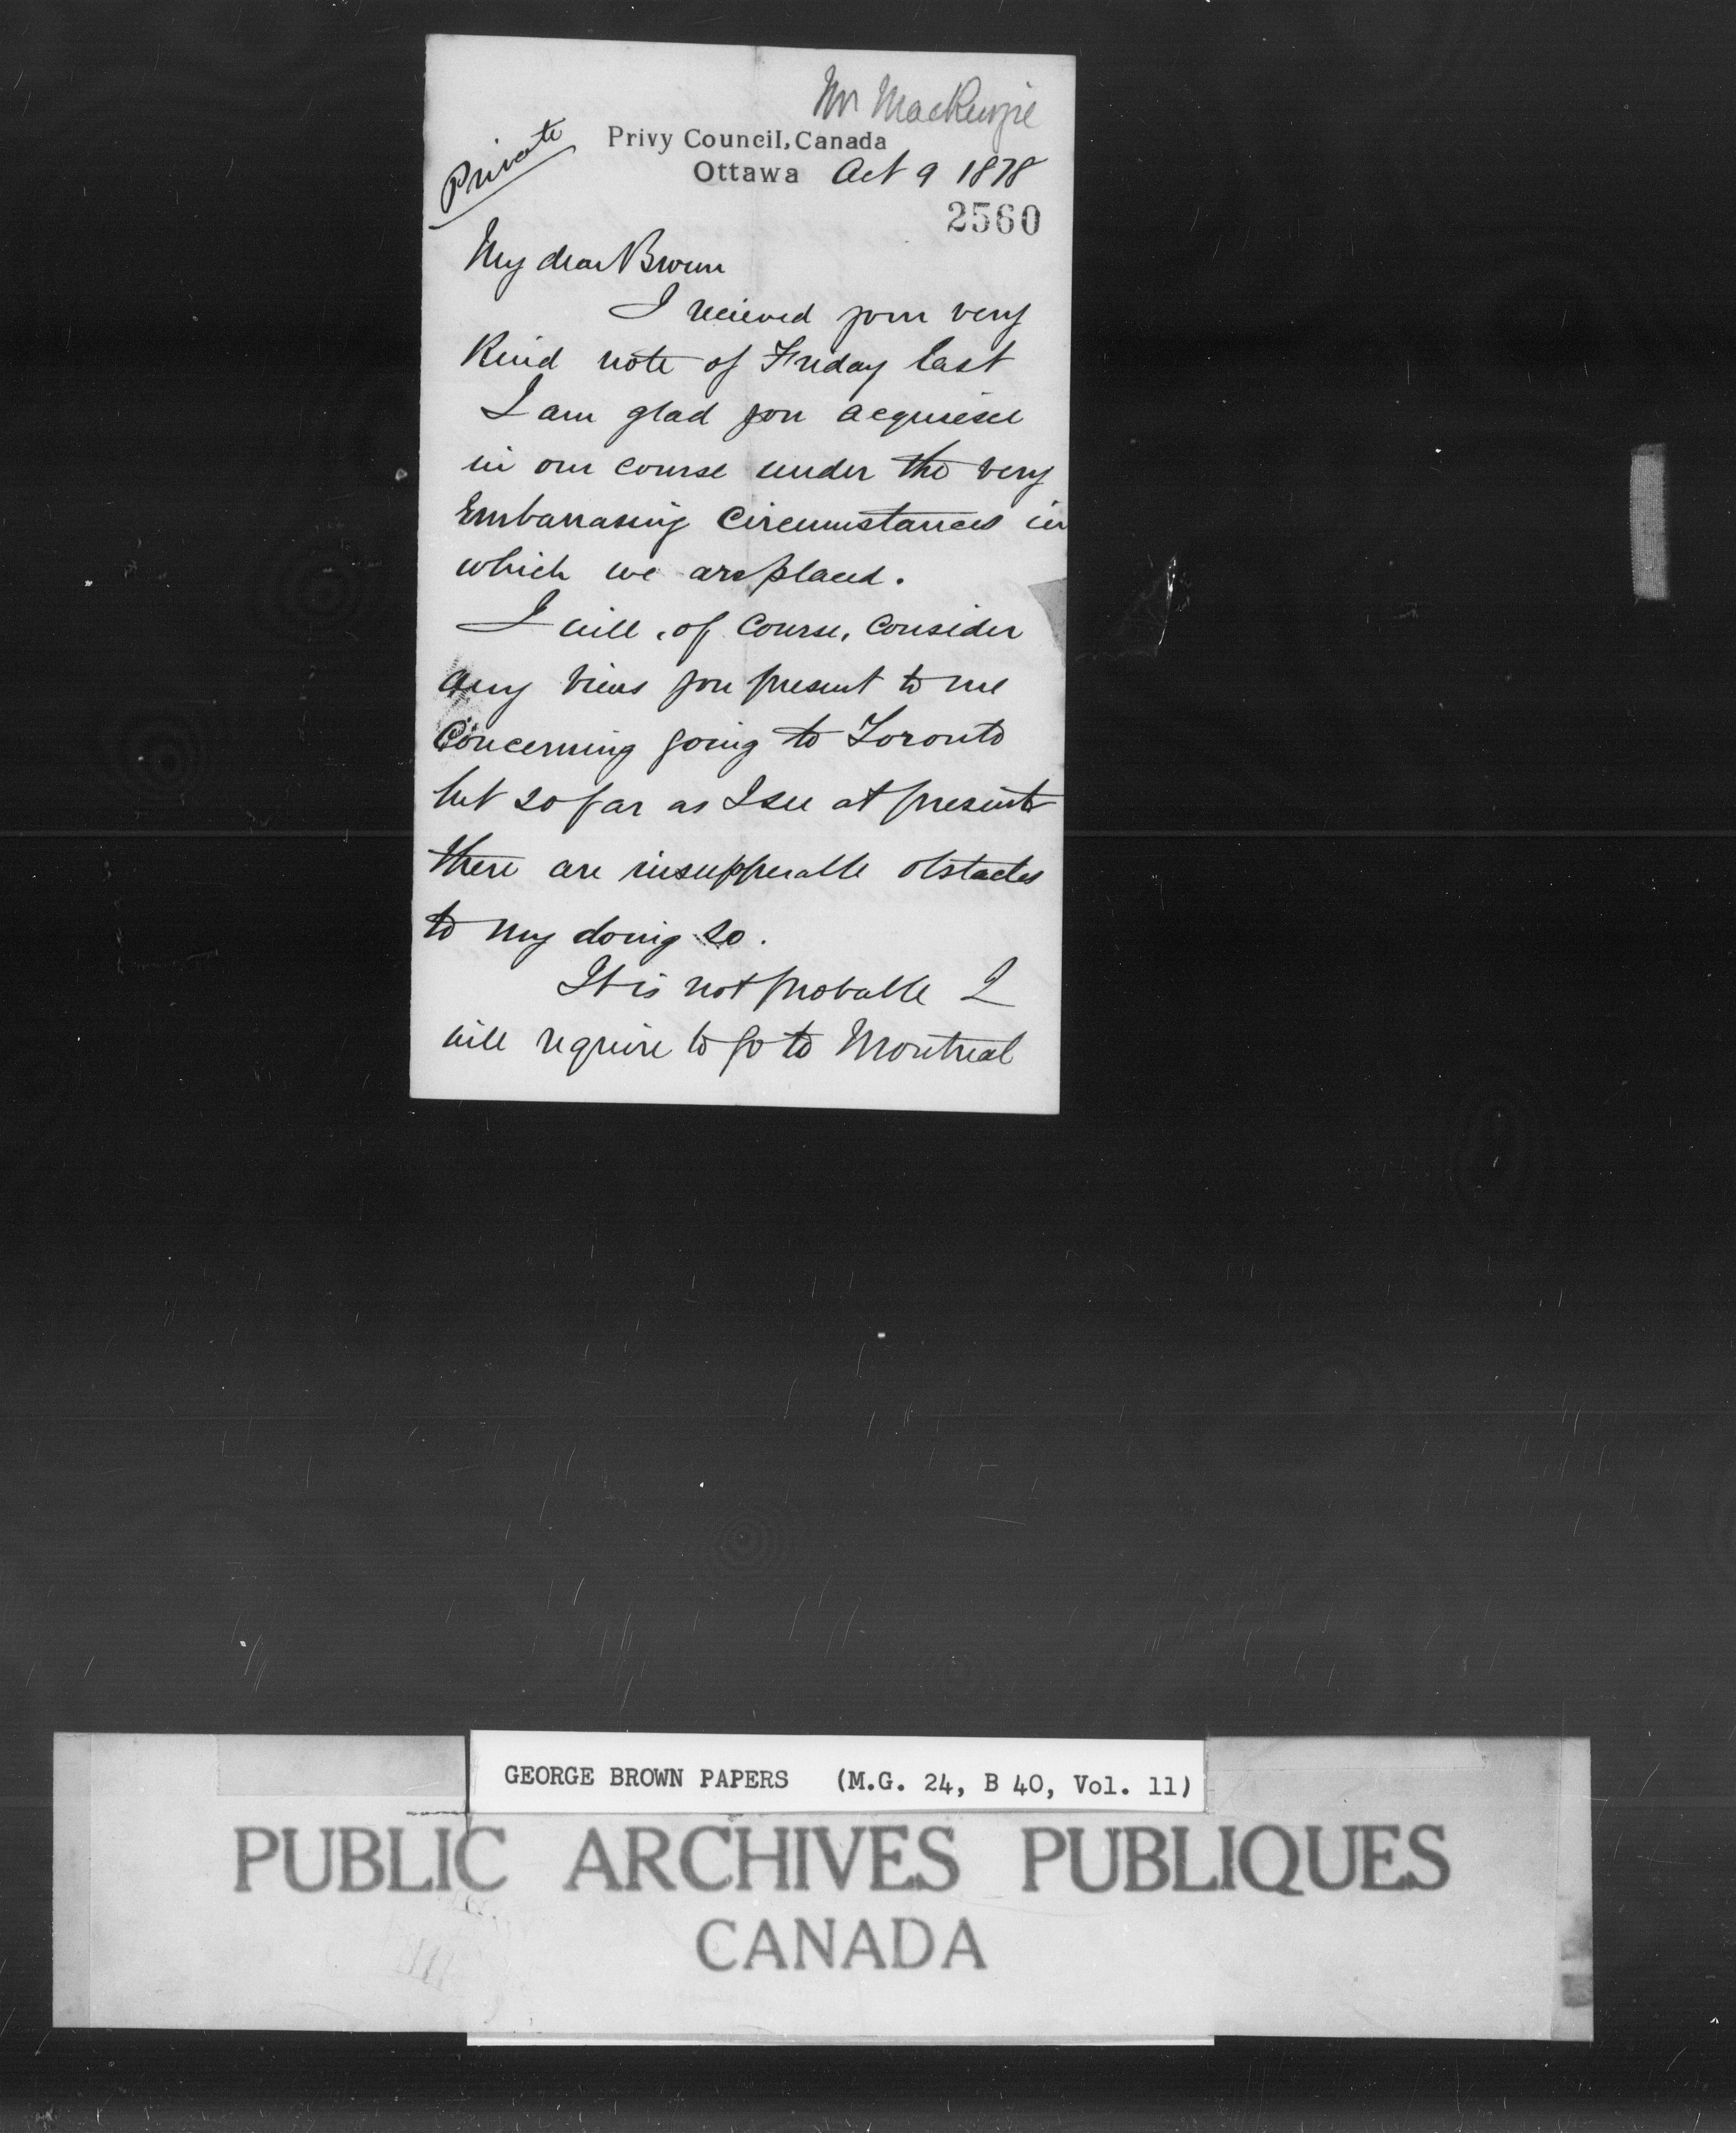 Mr MacKenzie
Private
Privy Council, Canada
Ottawa Oct 9 1878
2560
My dear Brown
I recieved your very
Kind note of Friday last
I am glad you acquiesce
in our course under the very
Embarrasing Circumstances in
which we are placed.
I will, of Course, Consider
any views you present to me
Concerning going to Toronto
but so far as I see at present
there are insupperable obstacles
to my doing so.
It is not probable I
will require to go to Montreal
GEORGE BROWN PAPERS (M.G. 24, B 40, Vol. 11)
PUBLIC ARCHIVES PUBLIQUES
CANADA